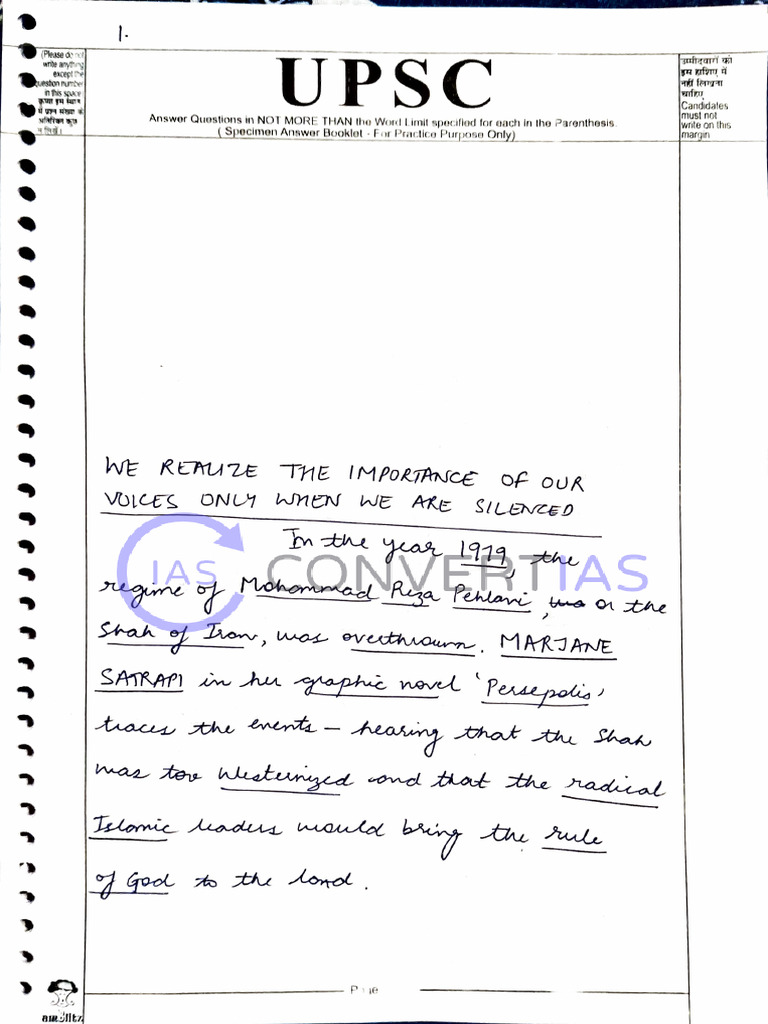 1.
(Please do not
write anything
except the
question number
in this space
उम्मीदवारों को
इस हाशिए में
नहीं लिखना
चाहिए
Candidates
must not
write on this
margin
UPSC
Answer Questions in NOT MORE THAN the Word Limit specified for each in the Parenthesis.
( Specimen Answer Booklet - For Practice Purpose Only)
WE REALIZE THE IMPORTANCE OF OUR
VOICES ONLY WHEN WE ARE SILENCED
In the year 1979, the
IAS CONVERTIAS
regime of Mohammad Reza Pehlavi, or the
Shah of Iran, was overthrown. MARJANE
SATRAPI in her graphic novel 'Persepolis'
traces the events – hearing that the Shah
was too Westernized and that the radical
Islamic leaders would bring the rule
of God to the land.